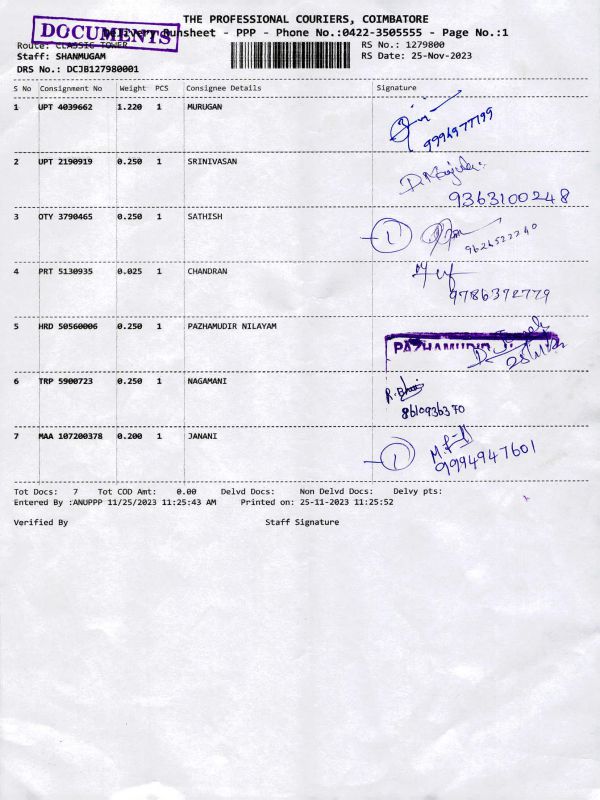 THE PROFESSIONAL COURIERS, COIMBATORE
DOCUMENTS
Delivery Runsheet - PPP - Phone No.:0422-3505555 - Page No.:1
Route: CLASSIC TOWER
RS No.: 1279800
Staff: SHANMUGAM
RS Date: 25-Nov-2023
DRS No.: DCJB127980001
S No Consignment No Weight PCS Consignee Details Signature
1 UPT 4039662 1.220 1 MURUGAN
9994977199
2 UPT 2190919 0.250 1 SRINIVASAN
9363100248
3 OTY 3790465 0.250 1 SATHISH
1
4 PRT 5130935 0.025 1 CHANDRAN
9786372779
5 HRD 50560006 0.250 1 PAZHAMUDIR NILAYAM
PAZHAMUDIR
6 TRP 5900723 0.250 1 NAGAMANI
8610936370
7 MAA 107200378 0.200 1 JANANI
1
9994947601
Tot Docs: 7 Tot COD Amt: 0.00 Delvd Docs: Non Delvd Docs: Delvy pts:
Entered By :ANUPPP 11/25/2023 11:25:43 AM Printed on: 25-11-2023 11:25:52
Verified By Staff Signature